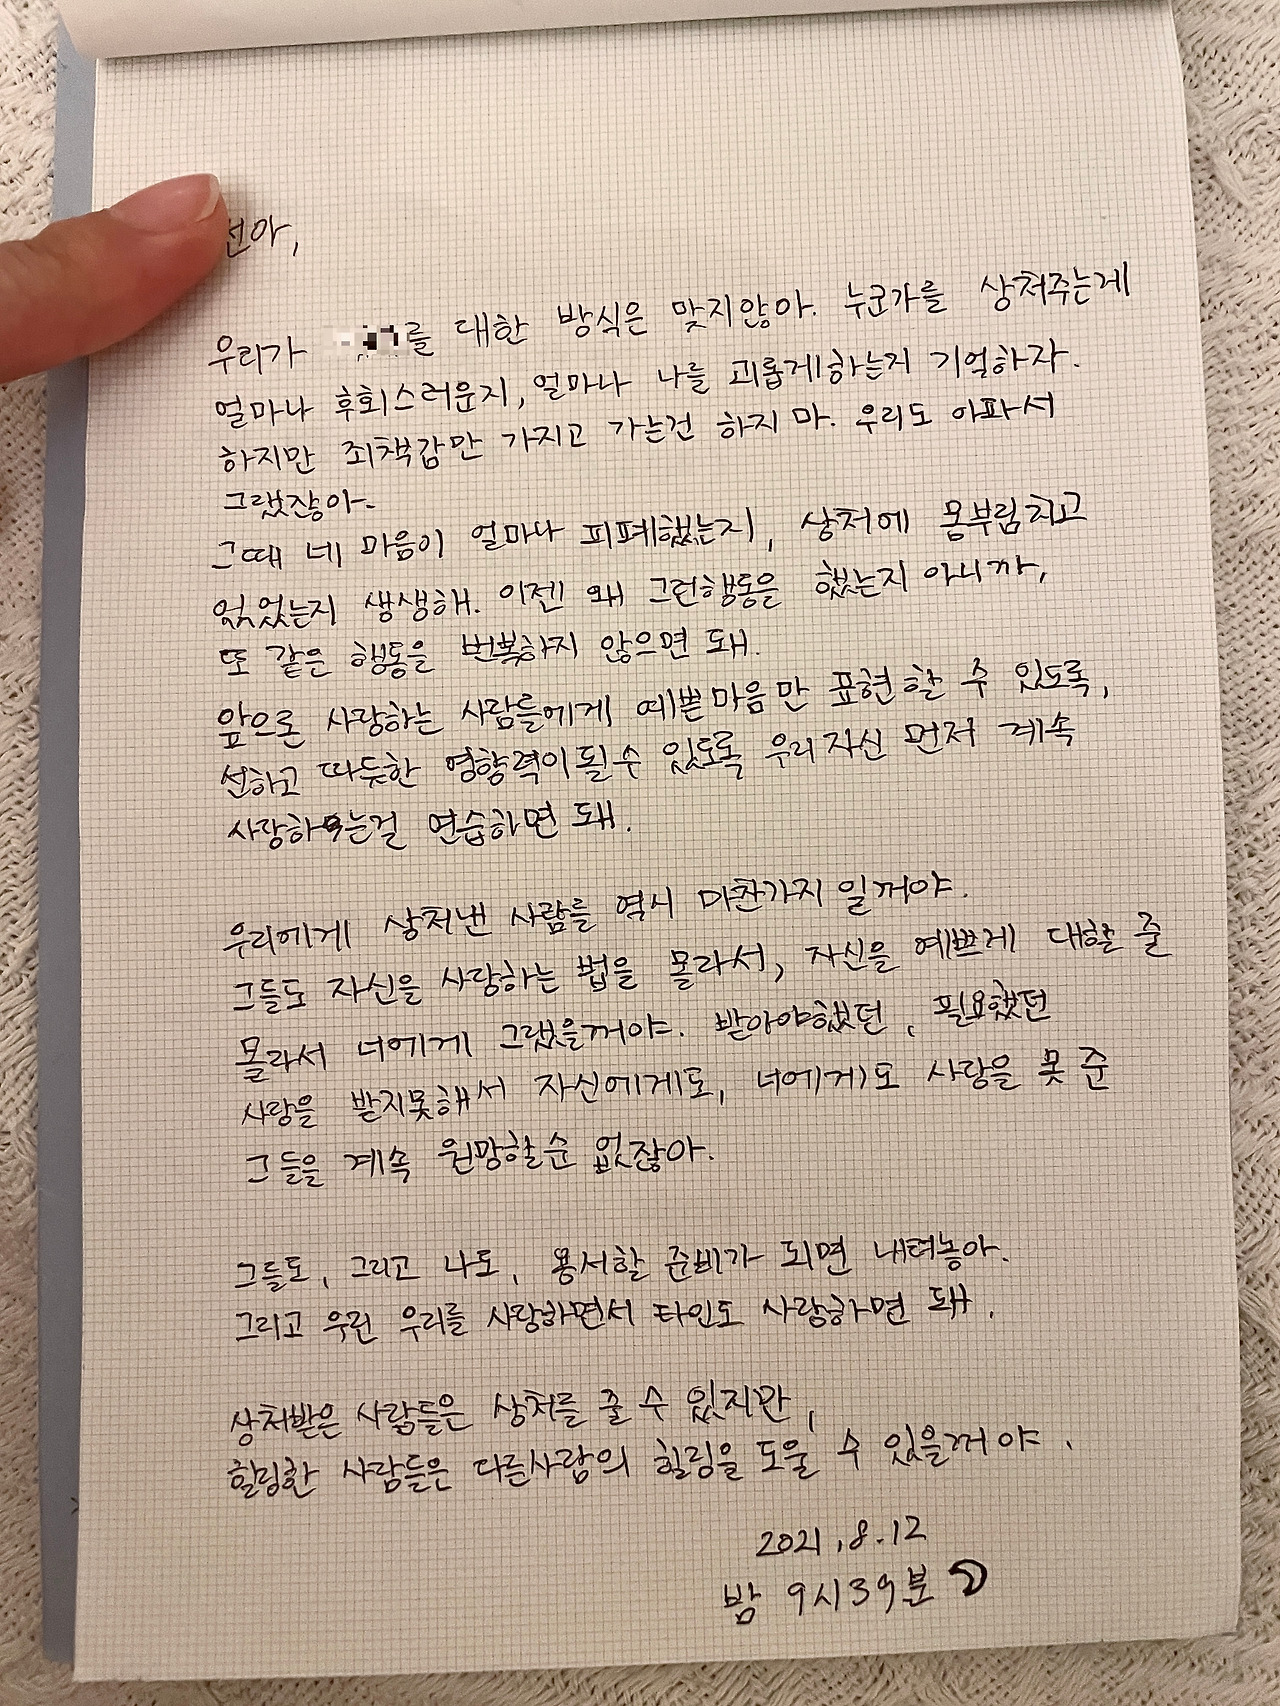 선아,
우리가 를 대한 방식은 맞지않아. 누군가를 상처주는게
얼마나 후회스러운지, 얼마나 나를 괴롭게하는지 기억하자.
하지만 죄책감만 가지고 가는건 하지 마. 우리도 아파서
그랬잖아.
그때 네 마음이 얼마나 피폐했는지, 상처에 몸부림치고
있었는지 생생해. 이젠 왜 그런행동을 했는지 아니까,
또 같은 행동을 번복하지 않으면 돼.
앞으론 사랑하는 사람들에게 예쁜마음만 표현할 수 있도록,
선하고 따듯한 영향력이될수 있도록 우리자신 먼저 계속
사랑하는걸 연습하면 돼.
우리에게 상처낸 사람들 역시 마찬가지 일꺼야.
그들도 자신을 사랑하는 법을 몰라서, 자신을 예쁘게 대할 줄
몰라서 너에게 그랬을꺼야. 받아야했던, 필요했던
사랑을 받지못해서 자신에게도, 너에게도 사랑을 못 준
그들을 계속 원망할순 없잖아.
그들도, 그리고 나도, 용서할 준비가 되면 내려놓아.
그리고 우린 우리를 사랑하면서 타인도 사랑하면 돼.
상처받은 사람들은 상처를 줄 수 있지만,
힐링한 사람들은 다른사람의 힐링을 도울 수 있을꺼야.
2021.8.12
밤 9시39분